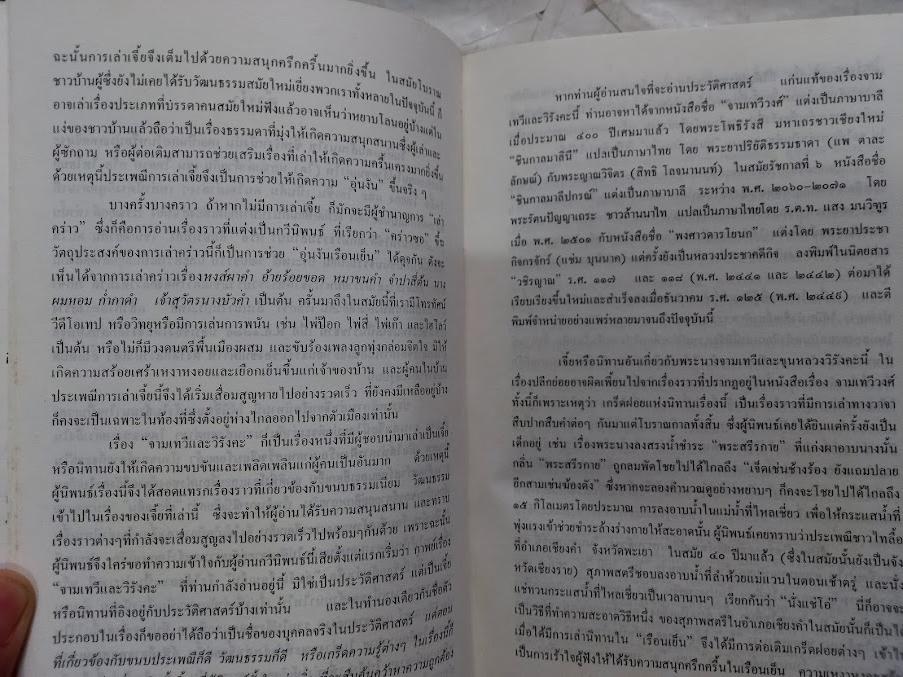 ฉะนั้นการเล่าเจี้ยจึงเต็มไปด้วยความสนุกครึกครื้นมากยิ่งขึ้น ในสมัยโบราณ
ชาวบ้านผู้ซึ่งยังไม่เคยได้รับวัฒนธรรมสมัยใหม่เยี่ยงพวกเราทั้งหลายในปัจจุบันนี้ ก็
อาจเล่าเรื่องประเภทที่บรรดาคนสมัยใหม่ฟังแล้วอาจเห็นว่าหยาบโลนอยู่บ้างแต่ใน
แง่ของชาวบ้านแล้วถือว่าเป็นเรื่องธรรมดาที่มุ่งให้เกิดความสนุกสนานซึ่งผู้เล่าและ
ผู้ซักถาม หรือผู้ต่อเติมสามารถช่วยเสริมเรื่องที่เล่าให้เกิดความครื้นเครงมากยิ่งขึ้น
ด้วยเหตุนี้ประเพณีการเล่าเจี้ยจึงเป็นการช่วยให้เกิดความ “อุ่นงัน” ขึ้นจริง ๆ
บางครั้งบางคราว ถ้าหากไม่มีการเล่าเจี้ย ก็มักจะมีผู้ชำนาญการ “เล่า
คร่าว” ซึ่งก็คือการอ่านเรื่องราวที่แต่งเป็นกวีนิพนธ์ ที่เรียกว่า “คร่าวซอ” ขึ้น
วัตถุประสงค์ของการเล่าคร่าวนี้ก็เป็นการช่วย “อุ่นงันเรือนเย็น” ได้ดุจกัน ดังจะ
เห็นได้จากการเล่าคร่าวเรื่องหงส์ผาคำ อ้ายร้อยขอด หมาขนคำ จำปาสี่ต้น นาง
ผมหอม ก่ำกาดำ เจ้าสุวัตรนางบัวคำ เป็นต้น ครั้นมาถึงในสมัยนี้ที่เรามีโทรทัศน์
วีดีโอเทป หรือวิทยุหรือมีการเล่นการพนัน เช่น ไพ่ป๊อก ไพ่สี่ ไพ่เก้า และไฮโลว์
เป็นต้น หรือไม่ก็มีวงดนตรีพื้นเมืองผสม และขับร้องเพลงลูกทุ่งกล่อมจิตใจ มิให้
เกิดความสร้อยเศร้าเหงาหงอยและเยือกเย็นขึ้นแก่เจ้าของบ้าน และผู้คนในบ้าน
ประเพณีการเล่าเจี้ยนี้จึงได้เริ่มเสื่อมสูญหายไปอย่างรวดเร็ว ที่ยังคงมีเหลืออยู่บ้าง
ก็คงจะเป็นเฉพาะในท้องที่ซึ่งตั้งอยู่ห่างไกลออกไปจากตัวเมืองเท่านั้น
เรื่อง “จามเทวีและวิรังคะ” ก็เป็นเรื่องหนึ่งที่มีผู้ชอบนำมาเล่าเป็นเจี้ย
หรือนิทานยังให้เกิดความขบขันและเพลิดเพลินแก่ผู้คนเป็นอันมาก ด้วยเหตุนี้
ผู้นิพนธ์เรื่องนี้จึงได้สอดแทรกเรื่องราวที่เกี่ยวข้องกับขนบธรรมเนียม วัฒนธรรม
เข้าไปในเรื่องของเจี้ยที่เล่านี้ ซึ่งจะทำให้ผู้อ่านได้รับความสนุกสนาน และทราบ
เรื่องราวต่างๆที่กำลังจะเสื่อมสูญลงไปอย่างรวดเร็วไปพร้อมๆกันด้วย เพราะฉะนั้น
ผู้นิพนธ์จึงใคร่ขอทำความเข้าใจกับผู้อ่านกวีนิพนธ์นี้เสียตั้งแต่แรกเริ่มว่า กาพย์เรื่อง
“จามเทวีและวิรังคะ” ที่ท่านกำลังอ่านอยู่นี้ มิใช่เป็นประวัติศาสตร์ แต่เป็นเจี้ย
หรือนิทานที่อิงอยู่กับประวัติศาสตร์บ้างเท่านั้น และในทำนองเดียวกันชื่อตัว
ประกอบในเรื่องก็ขออย่าได้ถือว่าเป็นชื่อของบุคคลจริงในประวัติศาสตร์ แต่ตอน
ที่เกี่ยวข้องกับขนบประเพณีก็ดี วัฒนธรรมก็ดี หรือเกร็ดความรู้ต่างๆ ในเรื่องนี้ก็
หากท่านผู้อ่านสนใจที่จะอ่านประวัติศาสตร์ แก่นแท้ของเรื่องจาม
เทวีและวิรังคะนี้ ท่านอาจหาได้จากหนังสือชื่อ “จามเทวีวงศ์” แต่งเป็นภาษาบาลี
เมื่อประมาณ ๔๐๐ ปีเศษมาแล้ว โดยพระโพธิรังสี มหาเถรชาวเชียงใหม่
“ชินกาลมาลินี” แปลเป็นภาษาไทย โดย พระยาปริยัติธรรมธาดา (แพ ตาละ
ลักษณ์) กับพระญาณวิจิตร (สิทธิ โลจนานนท์) ในสมัยรัชกาลที่ ๖ หนังสือชื่อ
“ชินกาลมาลีปกรณ์” แต่งเป็นภาษาบาลี ระหว่าง พ.ศ. ๒๐๖๐-๒๐๗๑ โดย
พระรัตนปัญญาเถระ ชาวล้านนาไท แปลเป็นภาษาไทยโดย ร.ต.ท. แสง มนวิฑูร
เมื่อ พ.ศ. ๒๕๐๑ กับหนังสือชื่อ “พงศาวดารโยนก” แต่งโดย พระยาประชา
กิจกรจักร์ (แช่ม บุนนาค) แต่ครั้งยังเป็นหลวงประชาคดีกิจ ลงพิมพ์ในนิตยสาร
“วชิรญาณ” ร.ศ. ๑๑๗ และ ๑๑๘ (พ.ศ. ๒๔๔๑ และ ๒๔๔๒) ต่อมาได้
เรียบเรียงขึ้นใหม่และสำเร็จลงเมื่อธันวาคม ร.ศ. ๑๒๕ (พ.ศ. ๒๔๔๙) และตี
พิมพ์จำหน่ายอย่างแพร่หลายมาจนถึงปัจจุบันนี้
เจี้ยหรือนิทานอันเกี่ยวกับพระนางจามเทวีและขุนหลวงวิรังคะนี้ ใน
เรื่องปลีกย่อยอาจผิดเพี้ยนไปจากเรื่องราวที่ปรากฏอยู่ในหนังสือเรื่อง จามเทวีวงศ์
ทั้งนี้ก็เพราะเหตุว่า เกร็ดฝอยแห่งนิทานเรื่องนี้ เป็นเรื่องราวที่มีการเล่าทางวาจา
สืบปากสืบคำต่อๆ กันมาแต่โบราณกาลทั้งสิ้น ซึ่งผู้นิพนธ์เคยได้ยินแต่ครั้งยังเป็น
เด็กอยู่ เช่น เรื่องพระนางลงสรงน้ำชำระ “พระสรีรกาย” ที่แก่งผาอาบนางนั้น
กลิ่น “พระสรีรกาย” ถูกลมพัดโชยไปได้ไกลถึง “เจ็ดเช่นช้างร้อง ยังแถมปลาย
อีกสามเช่นฆ้องดัง” ซึ่งหากจะลองคำนวณดูอย่างหยาบๆ ก็คงจะโชยไปได้ไกลถึง
๑๕ กิโลเมตรโดยประมาณ การลงอาบน้ำในแม่น้ำที่ไหลเชี่ยว เพื่อให้กระแสน้ำที่
พุ่งแรงเข้าช่วยชำระล้างร่างกายให้สะอาดนั้น ผู้นิพนธ์เคยทราบว่าประเพณีชาวไทลื้อ
ที่อำเภอเชียงคำ จังหวัดพะเยา ในสมัย ๔๐ ปีมาแล้ว (ซึ่งในสมัยนั้นยังเป็นจัง
หวัดเชียงราย) สุภาพสตรีชอบลงอาบน้ำที่ลำห้วยแม่แวนในตอนเช้าตรู่ และนั่ง
แช่ทวนกระแสน้ำที่ไหลเชี่ยวเป็นเวลานานๆ เรียกกันว่า “นั่งแช่โอ่” นี่ก็อาจจะ
เป็นวิธีที่ทำความสะอาดวิธีหนึ่ง ของสุภาพสตรีในอำเภอเชียงคำในสมัยนั้นก็เป็นได้
เมื่อได้มีการเล่านิทานใน “เรือนเย็น” จึงได้มีการต่อเติมเกร็ดฝอยต่างๆ เข้าไป
เป็นการเร้าใจผู้ฟังให้ได้รับความสนุกครึกครื้นในเรือนเย็น